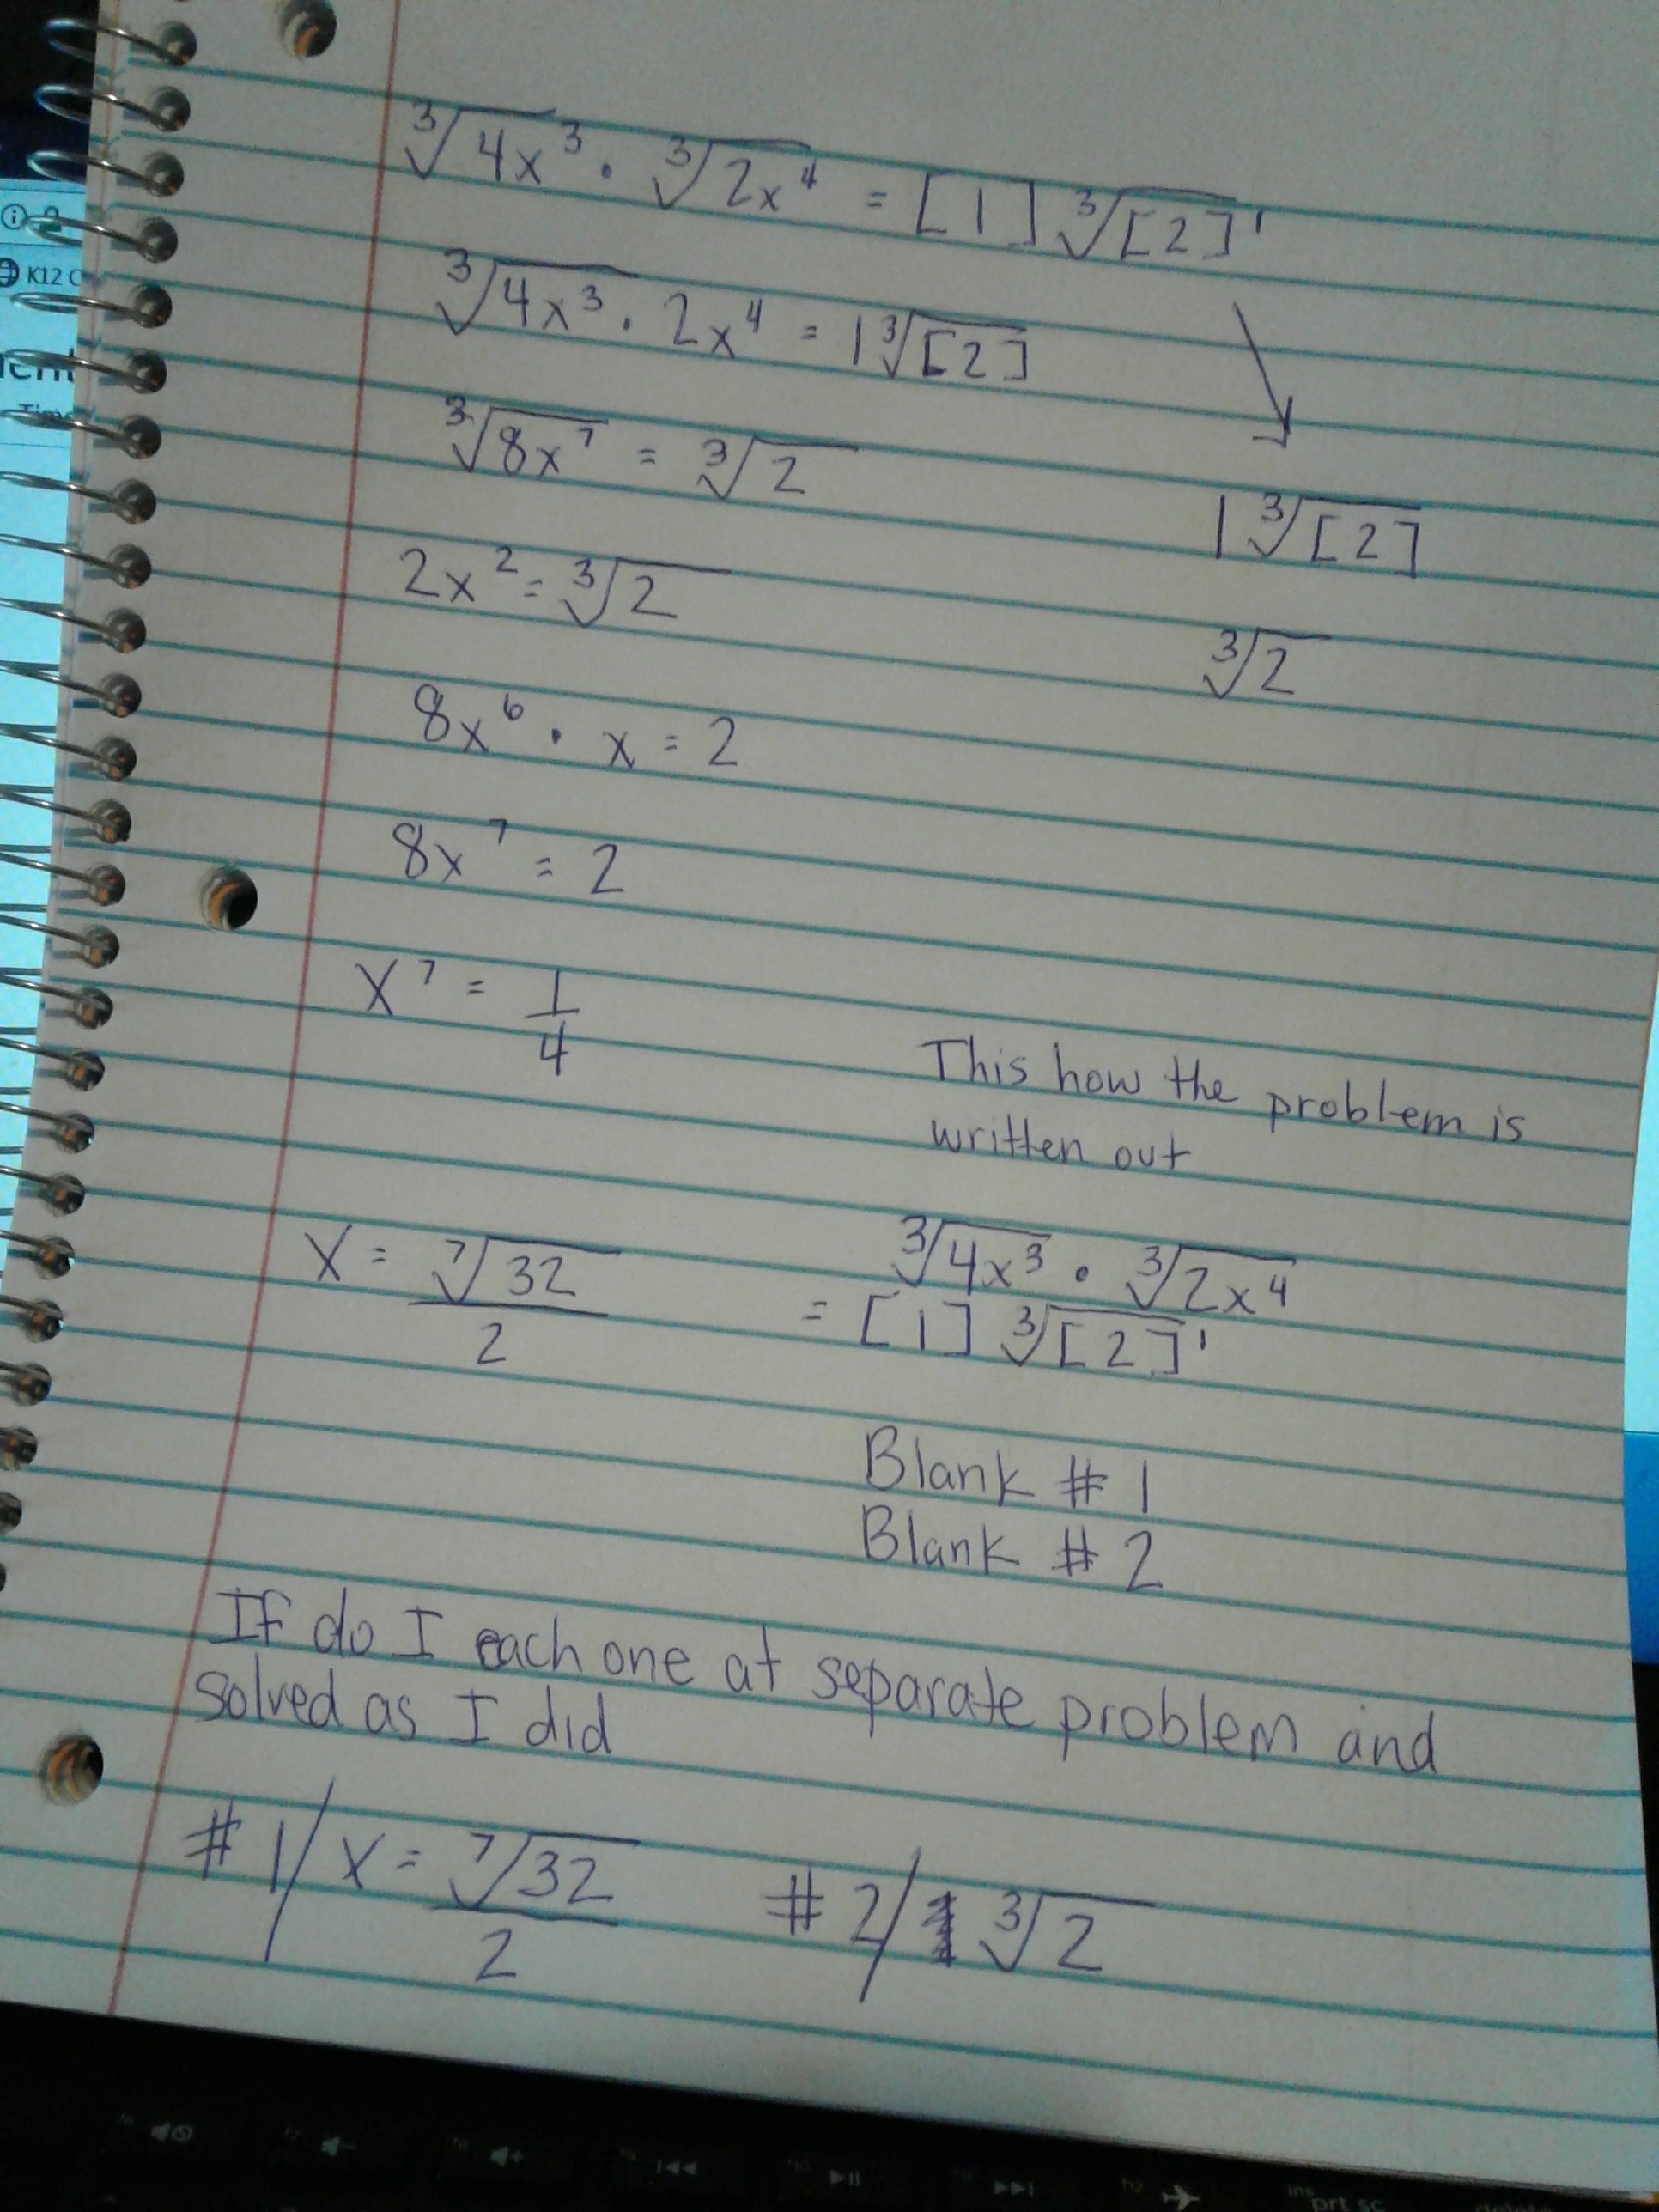 ∛4x³ · ∛2x⁴ = [1] ∛[2]'
∛4x³ · 2x⁴ = 1∛[2]
∛8x⁷ = ∛2
1∛[2]
2x² = ∛2
∛2
8x⁶ · x = 2
8x⁷ = 2
x⁷ = 1/4
This how the problem is
written out
x = ⁷√32 / 2
∛4x³ · ∛2x⁴
= [1] ∛[2]'
Blank # 1
Blank # 2
If do I each one at separate problem and
solved as I did
# 1/ x = ⁷√32 / 2
# 2/ ∛2
K12
prt sc